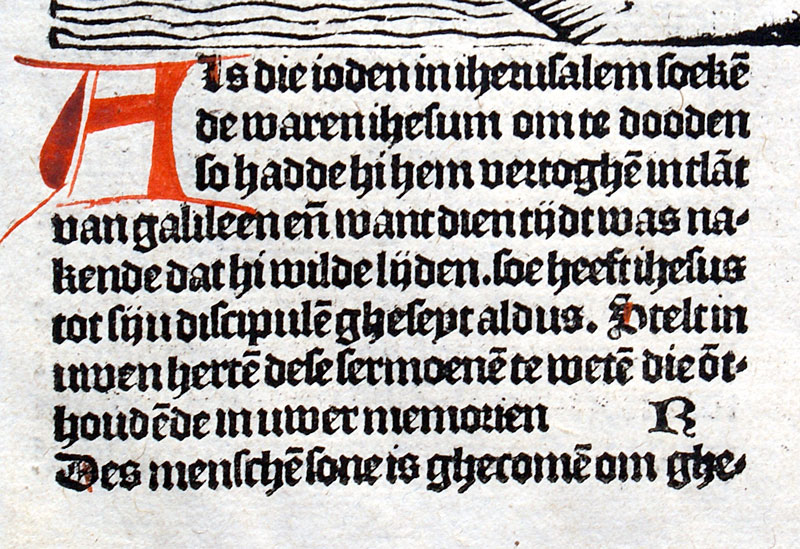 Als die ioden in iherusalem soekē
de waren ihesum om te dooden
so hadde hi hem vertoghē int lāt
van galileen en̄ want dien tijdt was na-
kende dat hi wilde lijden. soe heeft ihesus
tot sijn discipulē ghesept aldus. Stelt in
uwen hertē dese sermoenē te wetē die ōt-
houdēde in uwer memorien R
Des menschē sone is ghecomē om ghe-